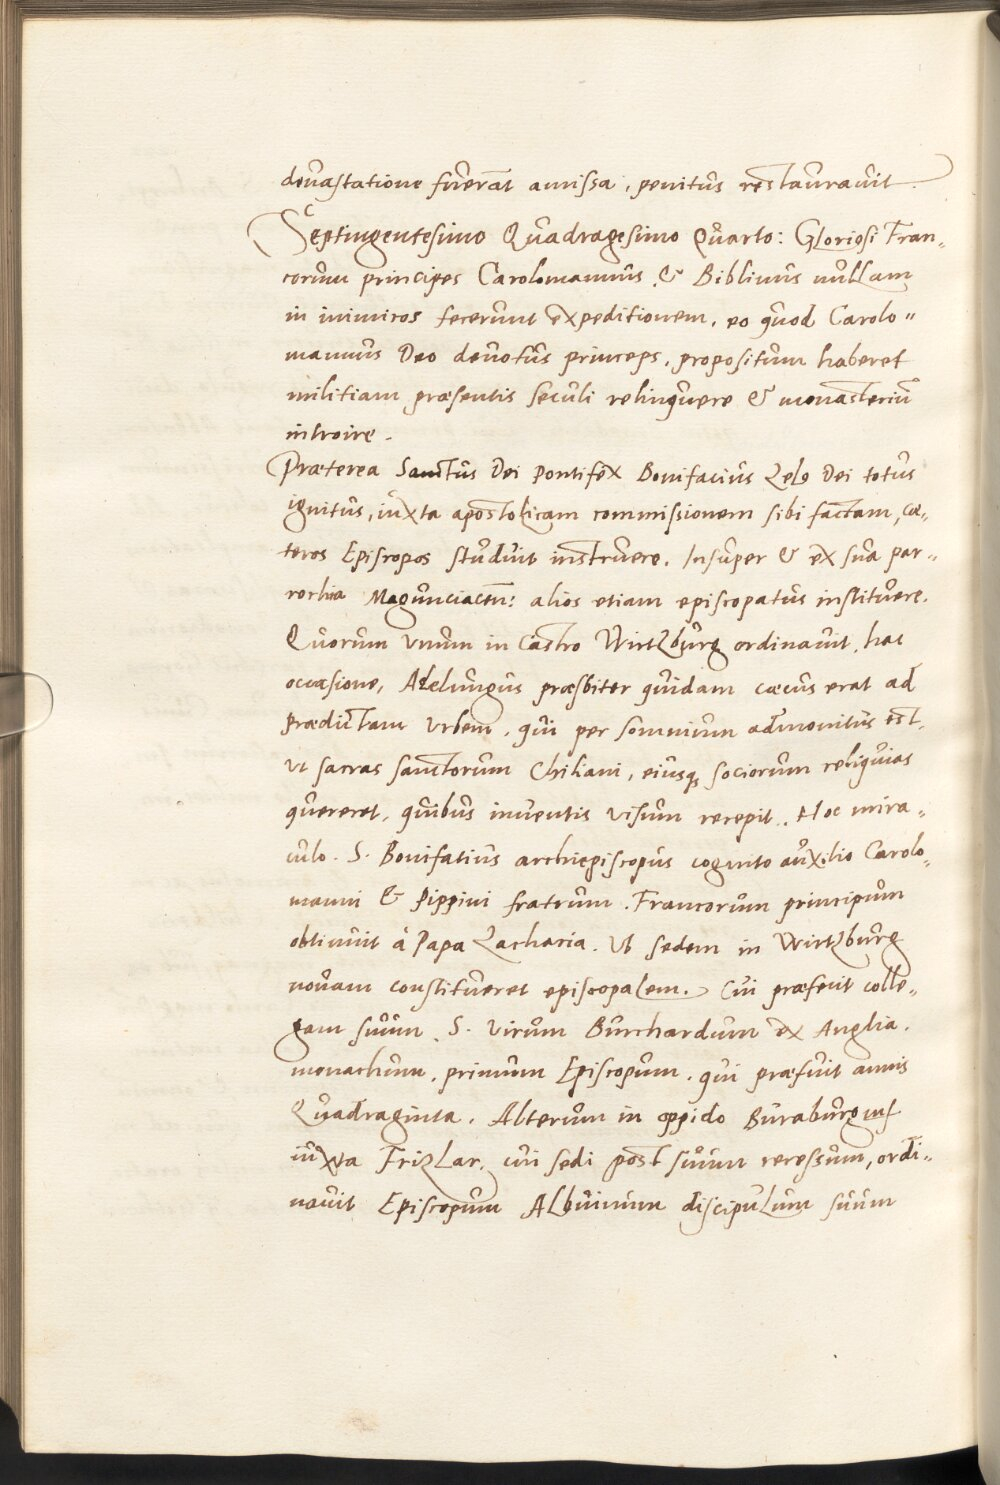 devastatione fuerāt amissa, penitus restauravit.
Septingentesimo Quadragesimo Quarto: Gloriosi Fran„
corum principes Carolomannus & Biblinus nullam
in inimicos fecerunt expeditionem, eo quod Carolo„
mannus Deo devotus princeps, propositum haberet
militiam præsentis seculi relinquere & monasteriū
introire.
Præterea Sanctus Dei pontifex Bonifacius Zelo Dei totus
ignitus, iuxta apostolicam commissionem sibi factam, cæ„
teros Episcopos studuit instruere. Insuper & ex sua par„
rochia Magunciacen: alios etiam episcopatus instituere.
Quorum unum in Castro Wirtzburg ordinavit, hac
occasione, Adelungus præsbiter quidam cæcus erat ad
prædictam urbem, qui per somnium admonitus est,
ut sacras sanctorum Chiliani, eiusq; sociorum reliquias
quereret, quibus inventis visum recepit. Hoc mira„
culo. S. Bonifatius archiepiscopus cognito auxilio Carolo„
manni & Pippini fratrum. Francorum principum
obtinuit à Papa Zacharia. Ut sedem in Wirtzburg
novam constitueret episcopalem. Cui præfecit colle„
gam suum. S. virum Burchardum ex Anglia.
monachum, primum Episcopum. qui præfuit annis
Quadraginta. Alterum in oppido Buraburg inf
iuxta Frizlar, cui sedi post suum recessum, ordi„
navit Episcopum Albuinum discipulum suum